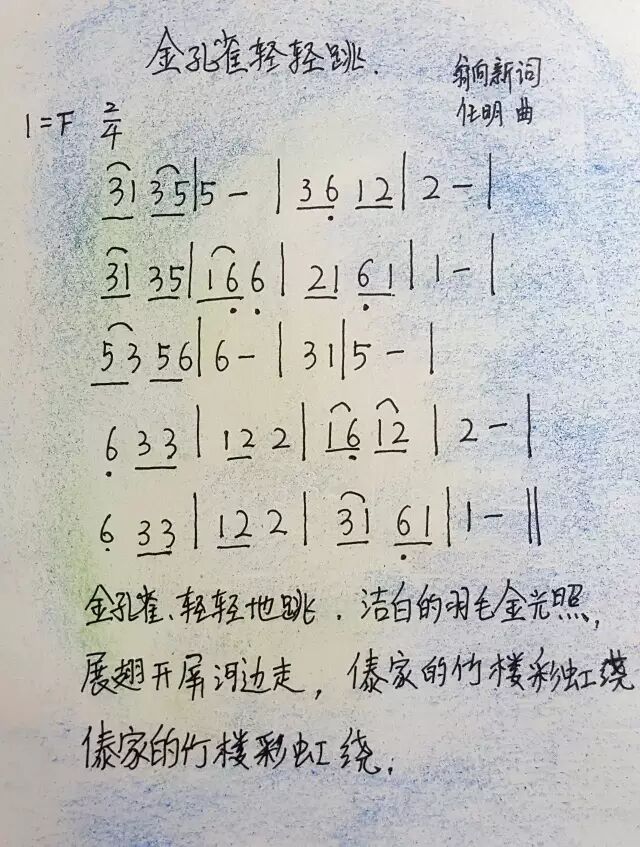 金孔雀轻轻跳.
翁向新词
任明 曲
1=F 2/4
31 35|5 - | 36 12|2 - |
31 35|16 6| 21 61|1 - |
53 56|6 - | 31|5 - |
6 33|12 2|16 12|2 - |
6 33|12 2|31 61|1 - ‖
金孔雀、轻轻地跳.洁白的羽毛金光照,
展翅开屏河边走,傣家的竹楼彩虹绕
傣家的竹楼彩虹绕.